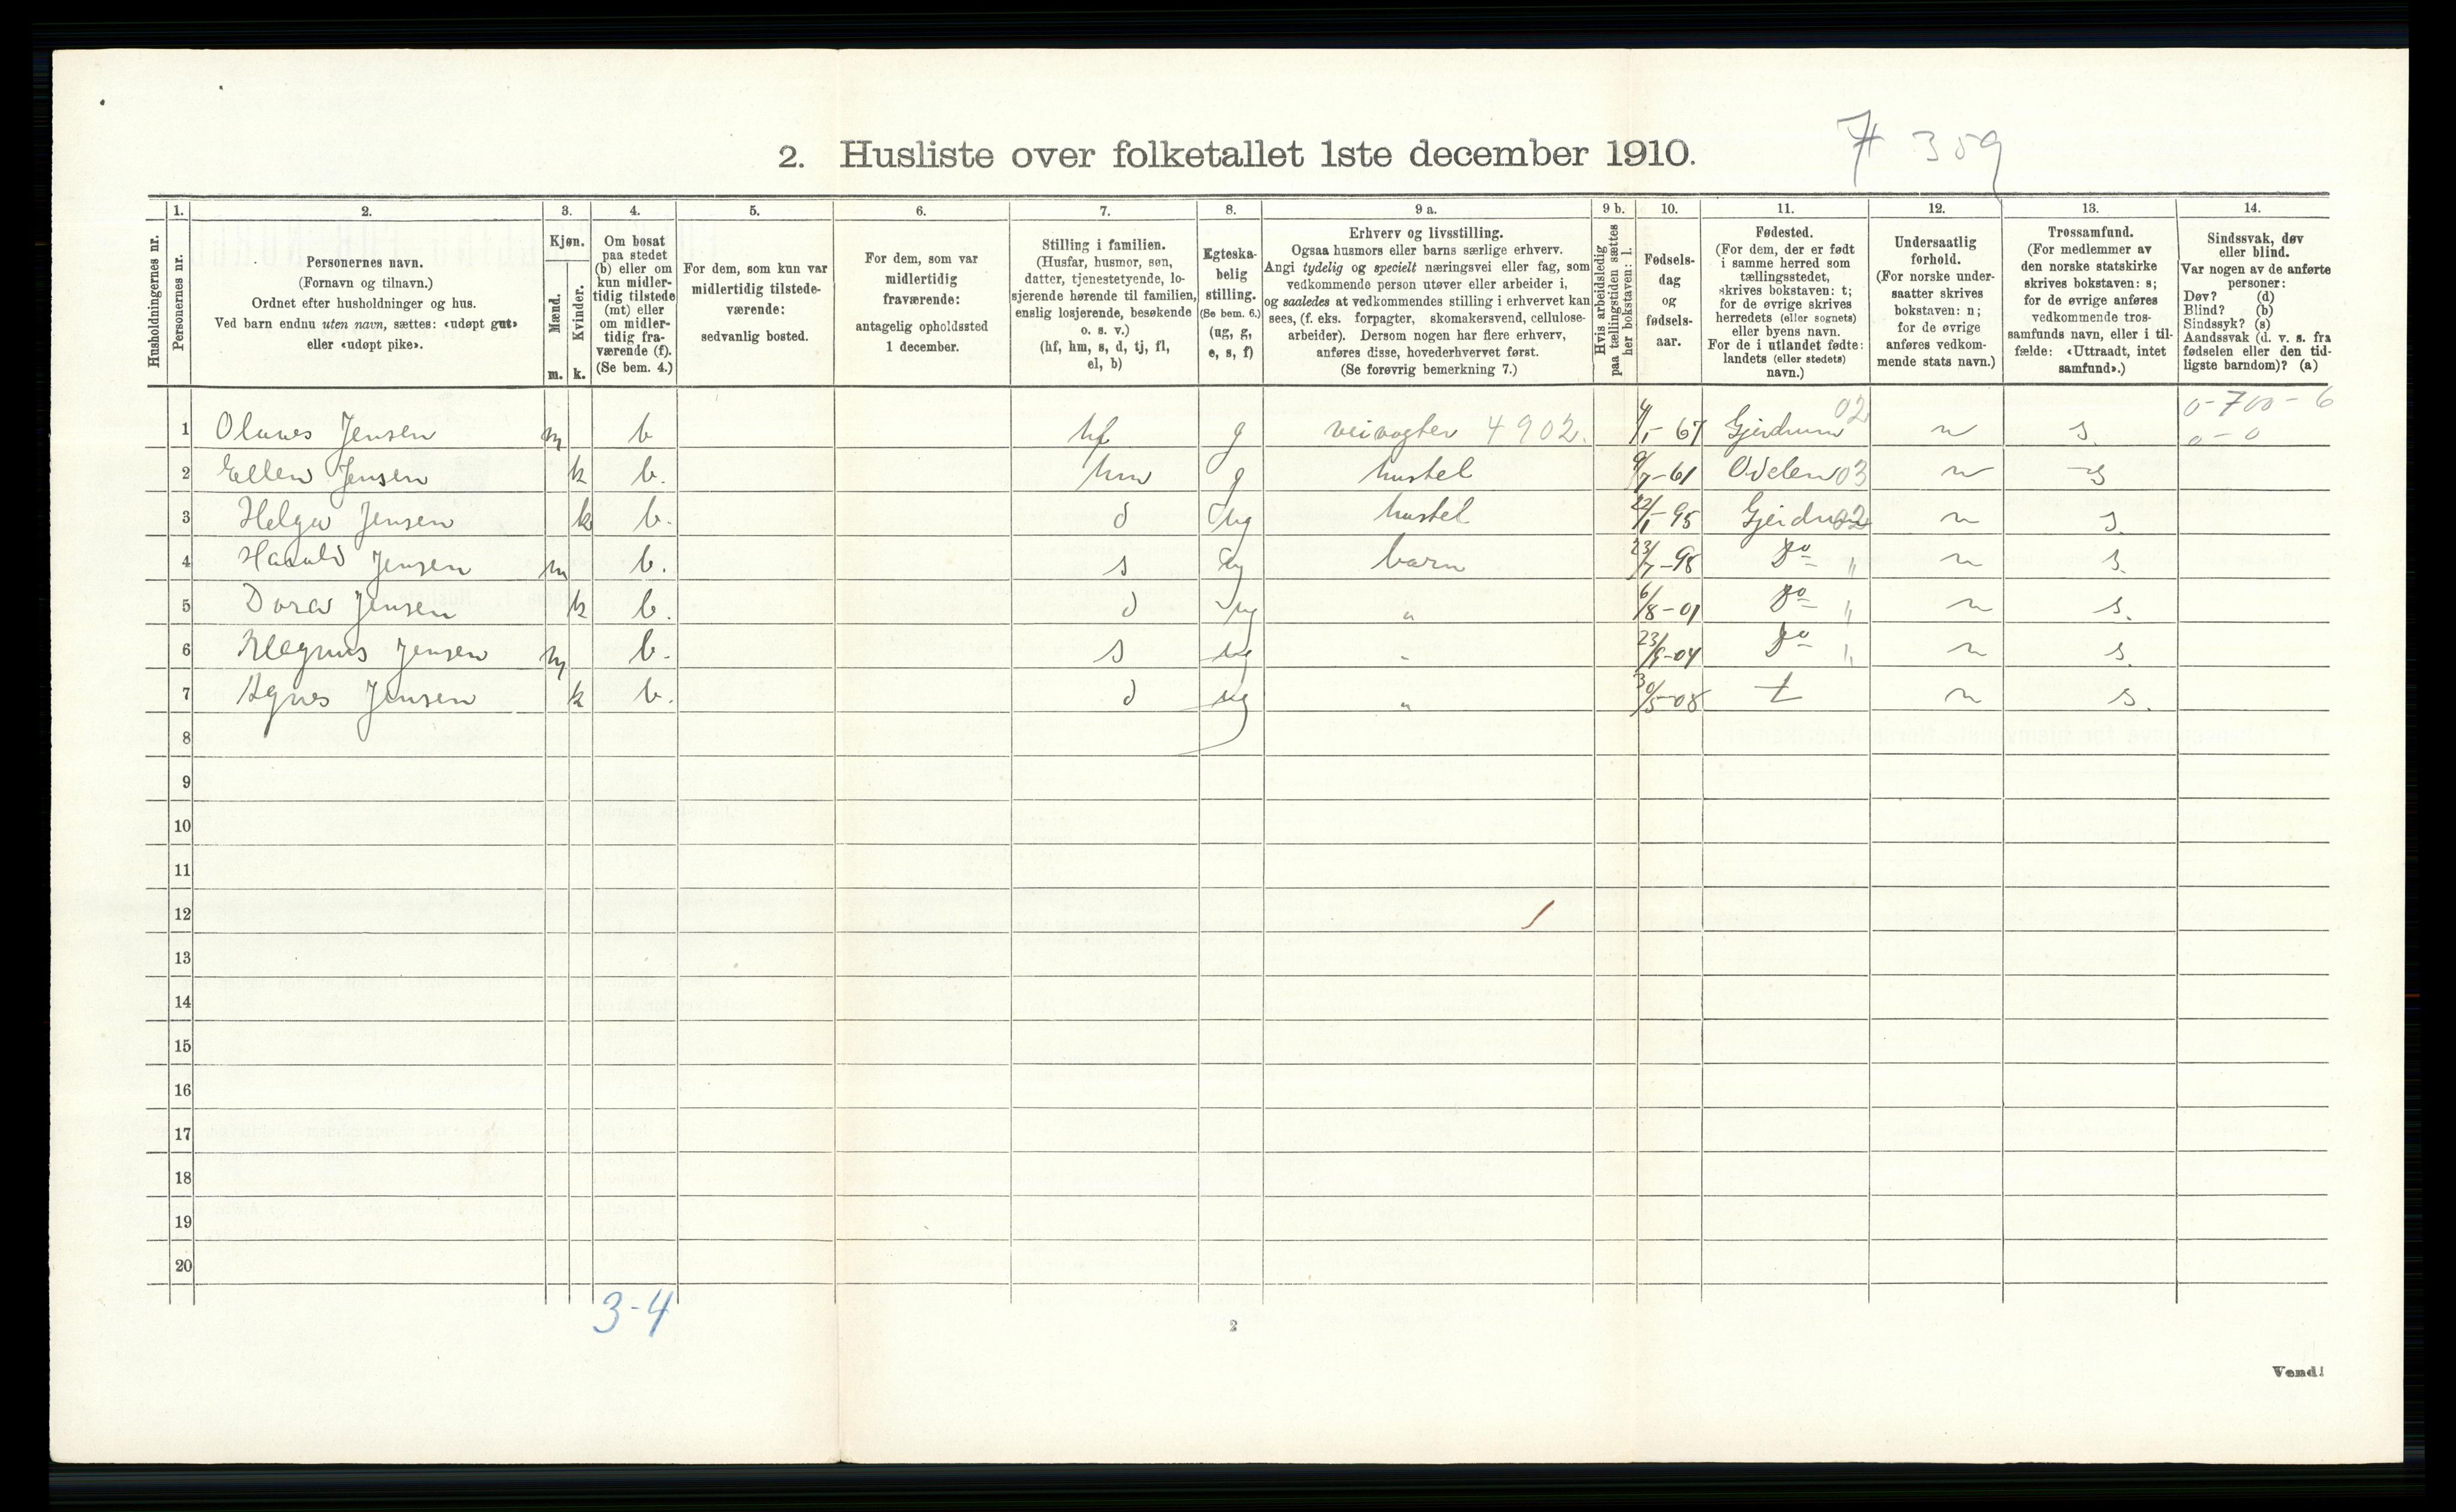 2. Husliste over folketallet 1ste december 1910.
359
1. 2. 3. 4. 5. 6. 7. 8. 9 a. 9 b. 10. 11. 12. 13. 14.
Husholdningernes nr.
Personernes nr.
Personernes navn.
(Fornavn og tilnavn.)
Ordnet efter husholdninger og hus.
Ved barn endnu uten navn, sættes: «udøpt gut»
eller «udøpt pike».
Kjøn.
Mænd.
Kvinder.
m. k.
Om bosat
paa stedet
(b) eller om
kun midler-
tidig tilstede
(mt) eller
om midler-
tidig fra-
værende (f).
(Se bem. 4.)
For dem, som kun var
midlertidig tilstede-
værende:
sedvanlig bosted.
For dem, som var
midlertidig
fraværende:
antagelig opholdssted
1 december.
Stilling i familien.
(Husfar, husmor, søn,
datter, tjenestetyende, lo-
sjerende hørende til familien,
enslig losjerende, besøkende
o. s. v.)
(hf, hm, s, d, tj, fl,
el, b)
Egteska-
belig
stilling.
(Se bem. 6.)
(ug, g,
e, s, f)
Erhverv og livsstilling.
Ogsaa husmors eller barns særlige erhverv.
Angi tydelig og specielt næringsvei eller fag, som
vedkommende person utøver eller arbeider i,
og saaledes at vedkommendes stilling i erhvervet kan
sees, (f. eks. forpagter, skomakersvend, cellulose-
arbeider). Dersom nogen har flere erhverv,
anføres disse, hovederhvervet først.
(Se forøvrig bemerkning 7.)
Hvis arbeidsledig
paa tællingstiden sættes
her bokstaven: l.
Fødsels-
dag
og
fødsels-
aar.
Fødested.
(For dem, der er født
i samme herred som
tællingsstedet,
skrives bokstaven: t;
for de øvrige skrives
herredets (eller sognets)
eller byens navn.
For de i utlandet fødte:
landets (eller stedets)
navn.)
Undersaatlig
forhold.
(For norske under-
saatter skrives
bokstaven: n;
for de øvrige
anføres vedkom-
mende stats navn.)
Trossamfund.
(For medlemmer av
den norske statskirke
skrives bokstaven: s;
for de øvrige anføres
vedkommende tros-
samfunds navn, eller i til-
fælde: «Uttraadt, intet
samfund».)
Sindssvak, døv
eller blind.
Var nogen av de anførte
personer:
Døv? (d)
Blind? (b)
Sindssyk? (s)
Aandssvak (d. v. s. fra
fødselen eller den tid-
ligste barndom)? (a)
0-700-6
1 Olaves Jensen m b hf g veivogter 4902. 4/1-67 Gjerdrum 02 n s. 0-0
2 Ellen Jensen k b. hm g hustel 9/7-61 Odelen 03 n s
3 Helga Jensen k b. d ug hustel 22/1-95 Gjerdrum 02 n s.
4 Harald Jensen m b. s ug barn 23/7-98 Do " n s.
5 Dora Jensen k b. d ug " 6/8-01 Do " n s.
6 Magnus Jensen m b. s ug " 23/9-04 Do " n s.
7 Agnes Jensen k b. d ug " 30/5-08 t n s.
8
9
10
11
12
13
14
15
16
17
18
19
20
3-4
2
Vend!